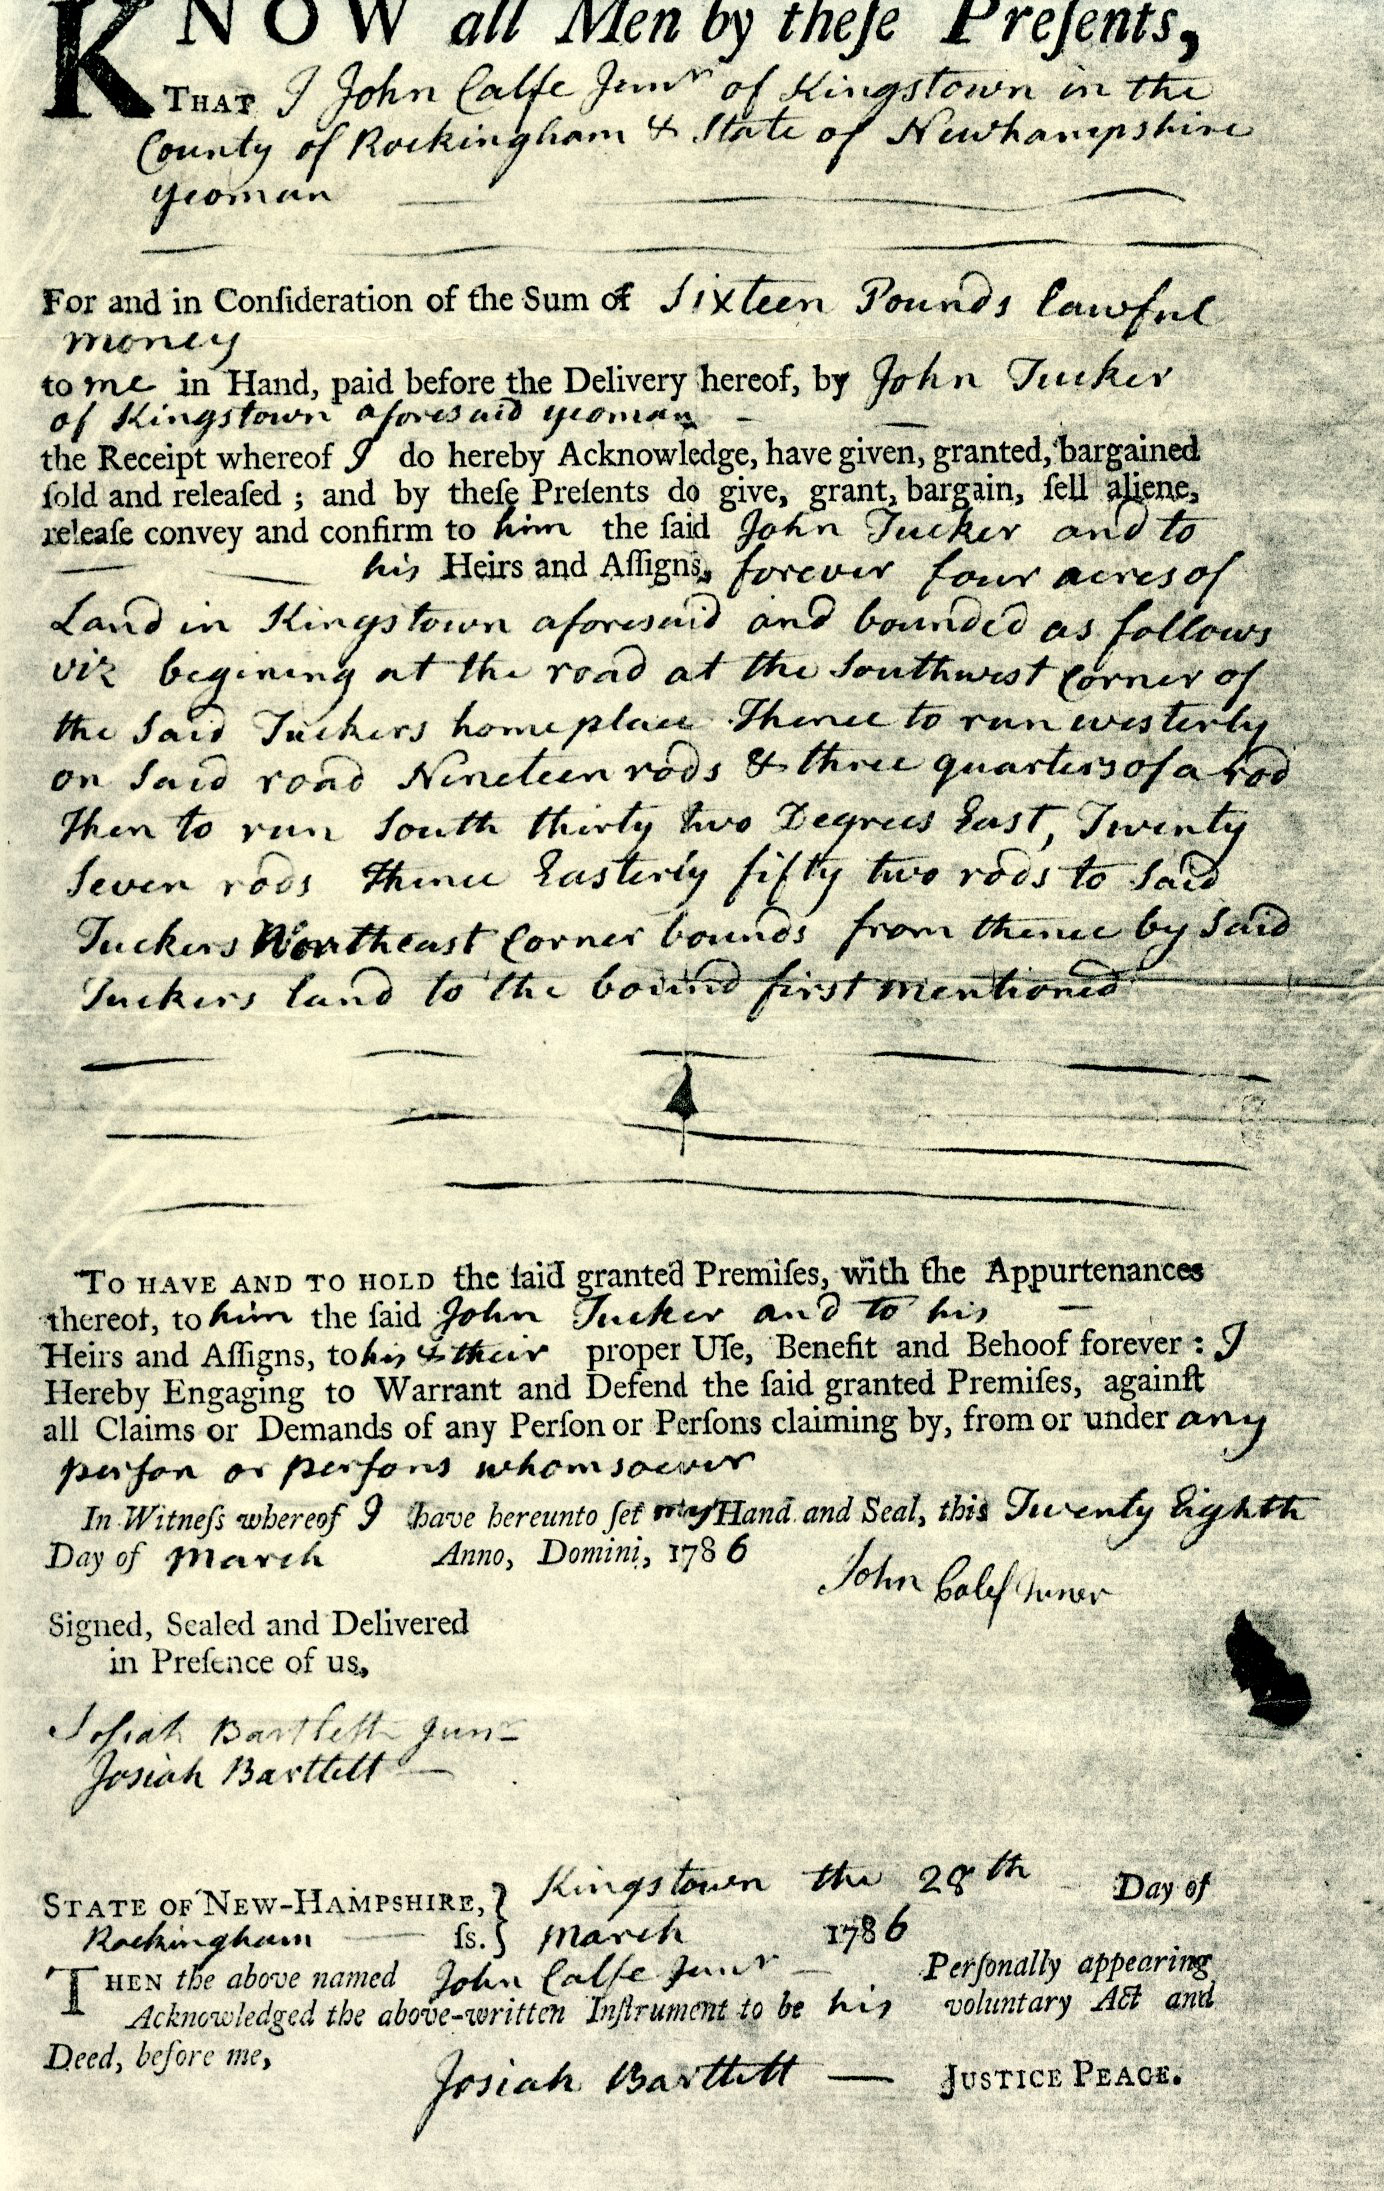 KNOW all Men by theſe Preſents,
THAT I John Calfe Junr of Kingstown in the
County of Rockingham & State of Newhampshire
yeoman
For and in Conſideration of the Sum of Sixteen Pounds lawful
money
to me in Hand, paid before the Delivery hereof, by John Tucker
of Kingstown aforesaid yeoman
the Receipt whereof I do hereby Acknowledge, have given, granted, bargained
ſold and releaſed ; and by theſe Preſents do give, grant, bargain, ſell aliene,
releaſe convey and confirm to him the ſaid John Tucker and to
his Heirs and Aſſigns, forever four acres of
Land in Kingstown aforesaid and bounded as follows
viz begining at the road at the Southwest Corner of
the Said Tuckers homeplace Thence to run westerly
on Said road Nineteen rods & three quarters of a rod
Then to run South thirty two Degrees East, Twenty
Seven rods Thence Easterly fifty two rods to Said
Tuckers Northeast Corner bounds from thence by Said
Tuckers land to the bound first mentioned
TO HAVE AND TO HOLD the ſaid granted Premiſes, with the Appurtenances
thereof, to him the ſaid John Tucker and to his
Heirs and Aſſigns, to his & their proper Uſe, Benefit and Behoof forever : I
Hereby Engaging to Warrant and Defend the ſaid granted Premiſes, againſt
all Claims or Demands of any Perſon or Perſons claiming by, from or under any
perſon or perſons whomsoever
In Witneſs whereof I have hereunto ſet my Hand and Seal, this Twenty Eighth
Day of March Anno, Domini, 1786
John Calef Juner
Signed, Sealed and Delivered
in Preſence of us,
Joſiah Bartlett Junr
Josiah Bartlett
STATE OF NEW-HAMPSHIRE, } Kingstown the 28th Day of
Rockingham ſs. } March 1786
THEN the above named John Calfe Junr Perſonally appearing
Acknowledged the above-written Inſtrument to be his voluntary Act and
Deed, before me,
Josiah Bartlett — JUSTICE PEACE.